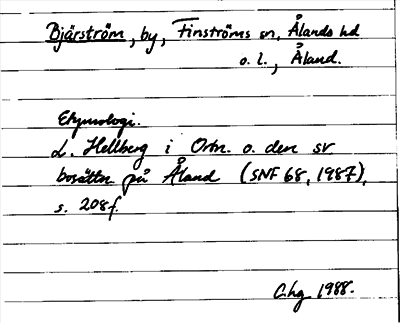 Bjärström, by, Finströms sn, Ålands hd
o. l., Åland.
Etymologi.
L. Hellberg i Ortn. o. den sv
bosättn på Åland (SNF 68, 1987),
s. 208f.
C.hg 1988.